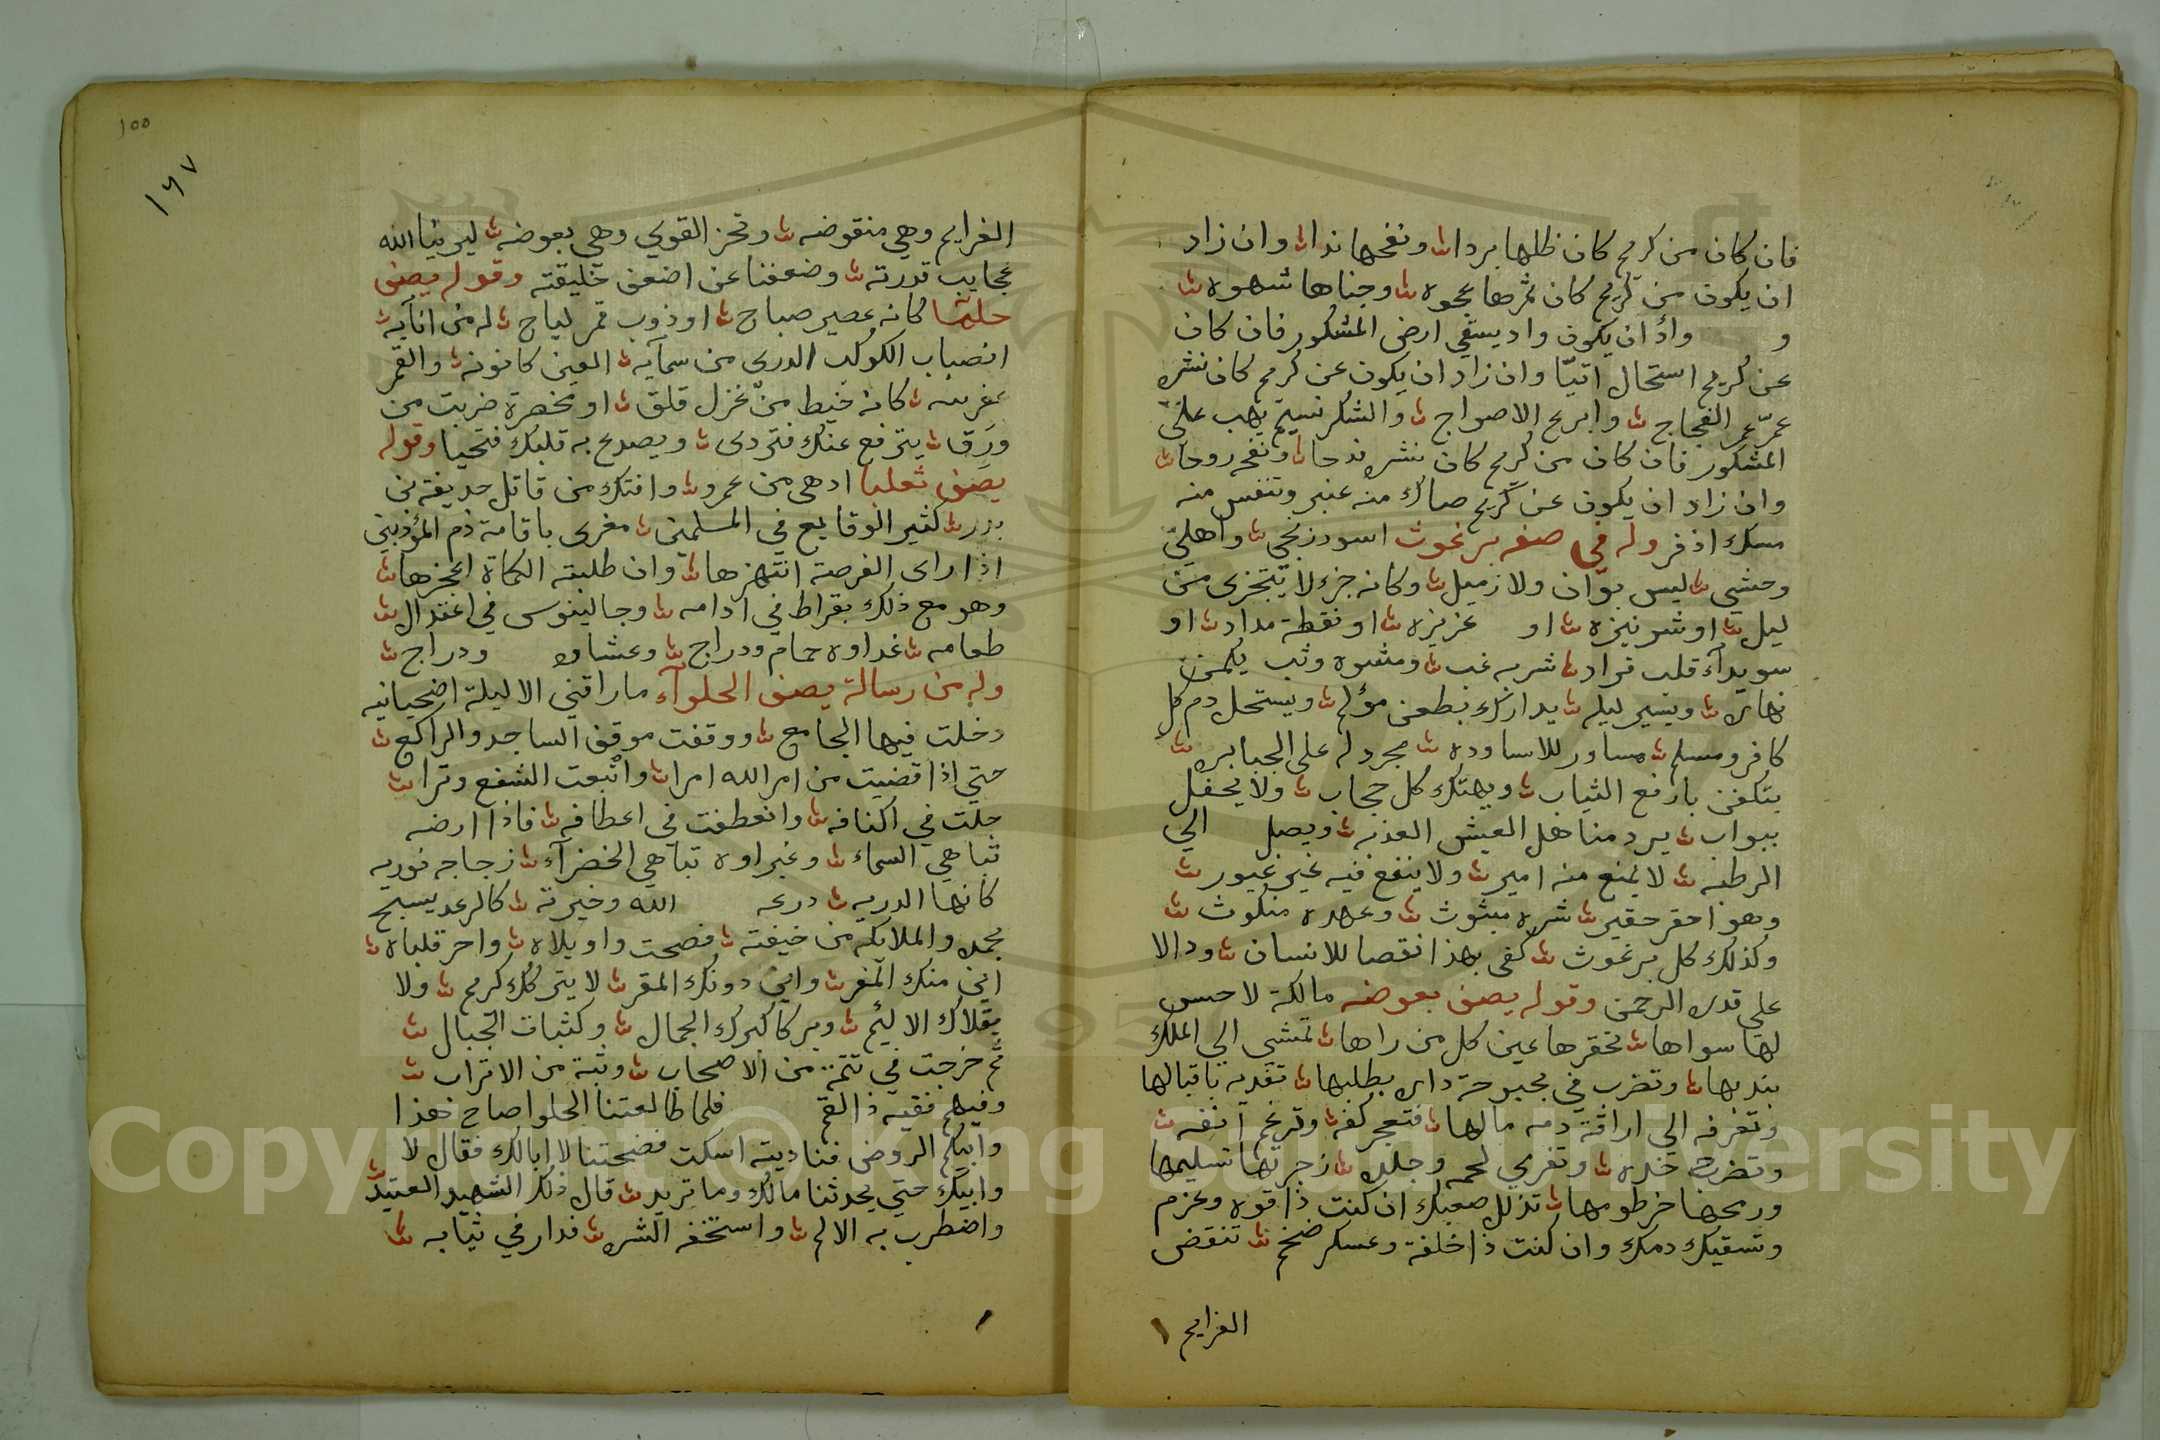 فان كان من كريم كان ظلها بردا ونفحها ندا وان زاد
ان يكون من كريم كان ثمرها عجوه وجناها شهوه
و وادٔ ان يكون واد يسقي ارض المشكور فان كان
عن كريم استحال اتيّا وان زاد ان يكون عن كريم كان نشره
الفجاج وابريح الامواج والشكر نسيم يهب علي
المشكور فان كان من كريم كان نشره ونفحه روحا
وان زاد ان يكون عن كريم صاك منه عنبر وتنفس منه
مسك اذفر وله في صفه برغوث اسود زنجي واهلي
وحشي ليس بوان ولا زميل وكانه جزء لا يتجزى من
ليل او شونيزه او غزيزه او نقطة مداد او
سويدآء قلب قراد شربه غب ومشوه وثب يكمن
نهاره ويسير ليله يدارك بطعن مؤلم ويستحل دم كل
كافر ومسلم مساور للاساوده مجرد له على الجبابره
يتكفن بارفع الثياب ويهتك كل حجاب ولا يحفل
ببواب يرد مناهل العيش العذبه ويصل الي
الرطبه لا يمنع منه امير ولا ينفع فيه غيره غيور
وهو احقر حقير شره مبثوث وعهده منكوث
وكذلك كل برغوث كفى بهذا نقصا للانسان ودالا
على قدره الرحمن وقوله يصف بعوضه مالكة لا حس
لها سواها تحقرها عين كل من راها تمشي الي الملك
بندبها وتضرب في بحبوحة داره بطلبها تقدبه باقبالها
وتعرفه الي اراقة دمه مالها فتعجز كفه وترغم انفه
وتضرب خده وتفري لحمه وجلده زجرتها تسليمها
ورمحها خرطومها تذلل صعبك ان كنت ذا قوه وعزم
وتسقيك دمك وان كنت ذا خلفة وعسكر ضخم تنقض
العزايم
١٥٥
١٤٧
العزايم وهي منقوضه وتحز القوي وهي بعوضه ليرينا الله
عجايب قدرته وضعفنا عن اضعف خليقته وقوله يصف
حلبا كانه عصير صباح او ذوب قمر لياح له من انايه
انصباب الكوكب الدرى من سمآيه العين كانونه والقمر
كانه خيط من غزل فلق او مخصرة ضربت من
ورق يترفع عنك فتردى ويصدع به قلبك فتحيا وقوله
يصف ثعلبا ادهى من عمرو وافتك من قاتل حذيفة بن
بدر كثير الوقايع في المسلمين مغرى باقامة ذم المؤذنين
اذا راى الفرصة انتهزها وان طلبته الكماة اعجزها
وهو مع ذلك بقراط في ادامه وجالينوس في اعتدال
طعامه غداوه حمام ودراج وعشاوه ودراج
وله من رسالة يصف الحلوآء ما راقني الا ليلة اضحيانيه
دخلت فيها الجامع ووقفت موقف الساجد والراكع
حتي اذا قضيت من امر الله امرا واتبعت الشفع وترا
جلت في اكنافه وانعطفت في اعطافه فاذا ارضه
تباهي السماء وغبراوه تباهي الخضرآء زجاجه نوريه
كانها الدريه درعه الله وخيرته كالرعد يسبح
بحمده والملايكه من خيفته فصحت واويلاه واحر قلباه
اين منك المفر واين دونك المقر لا يتركك كريم ولا
يقلاك الا لئيم وبركا كبرك الجمال وكثبات الجبال
ثم خرجت في تتمة من الاصحاب وثبة من الاتراب
وفيهم فقيه ذا لقم فلما طالعتنا الحلوا صاح هذا
وابيكم الروض فناديته اسكت فضحتنا لا ابالك فقال لا
وابيك حتي يحدثنا مالك وما تريد قال ذلك الشهيد العتيد
واضطرب به الالم واستخفه الشره فدار في ثيابه